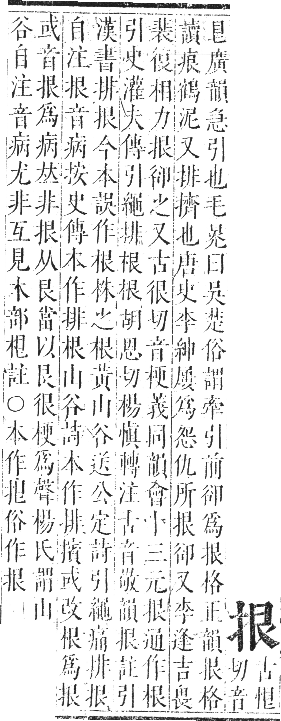 拫
古恒
切音
㫔廣韻急引也毛晃曰吳楚俗謂牽引前卻為拫格正韻拫格
讀痕鶴泥又排擠也唐史李紳屢為怨仇所拫卻又李逢吉畏
裴復相力拫卻之又古很切音梗義同韻會十三元拫通作根
引史灌夫傳引繩排根根胡恩切楊慎轉注古音敬韻拫註引
漢書拼拫今本誤作根株之根黃山谷送公定詩引繩痛排拫
自注拫音病按史傳本作排根山谷詩本作排擯或改根為拫
或音拫為病𠀤非拫从艮當以艮很梗為聲楊氏謂山
谷自注音病尤非互見木部根註○本作㧃俗作拫